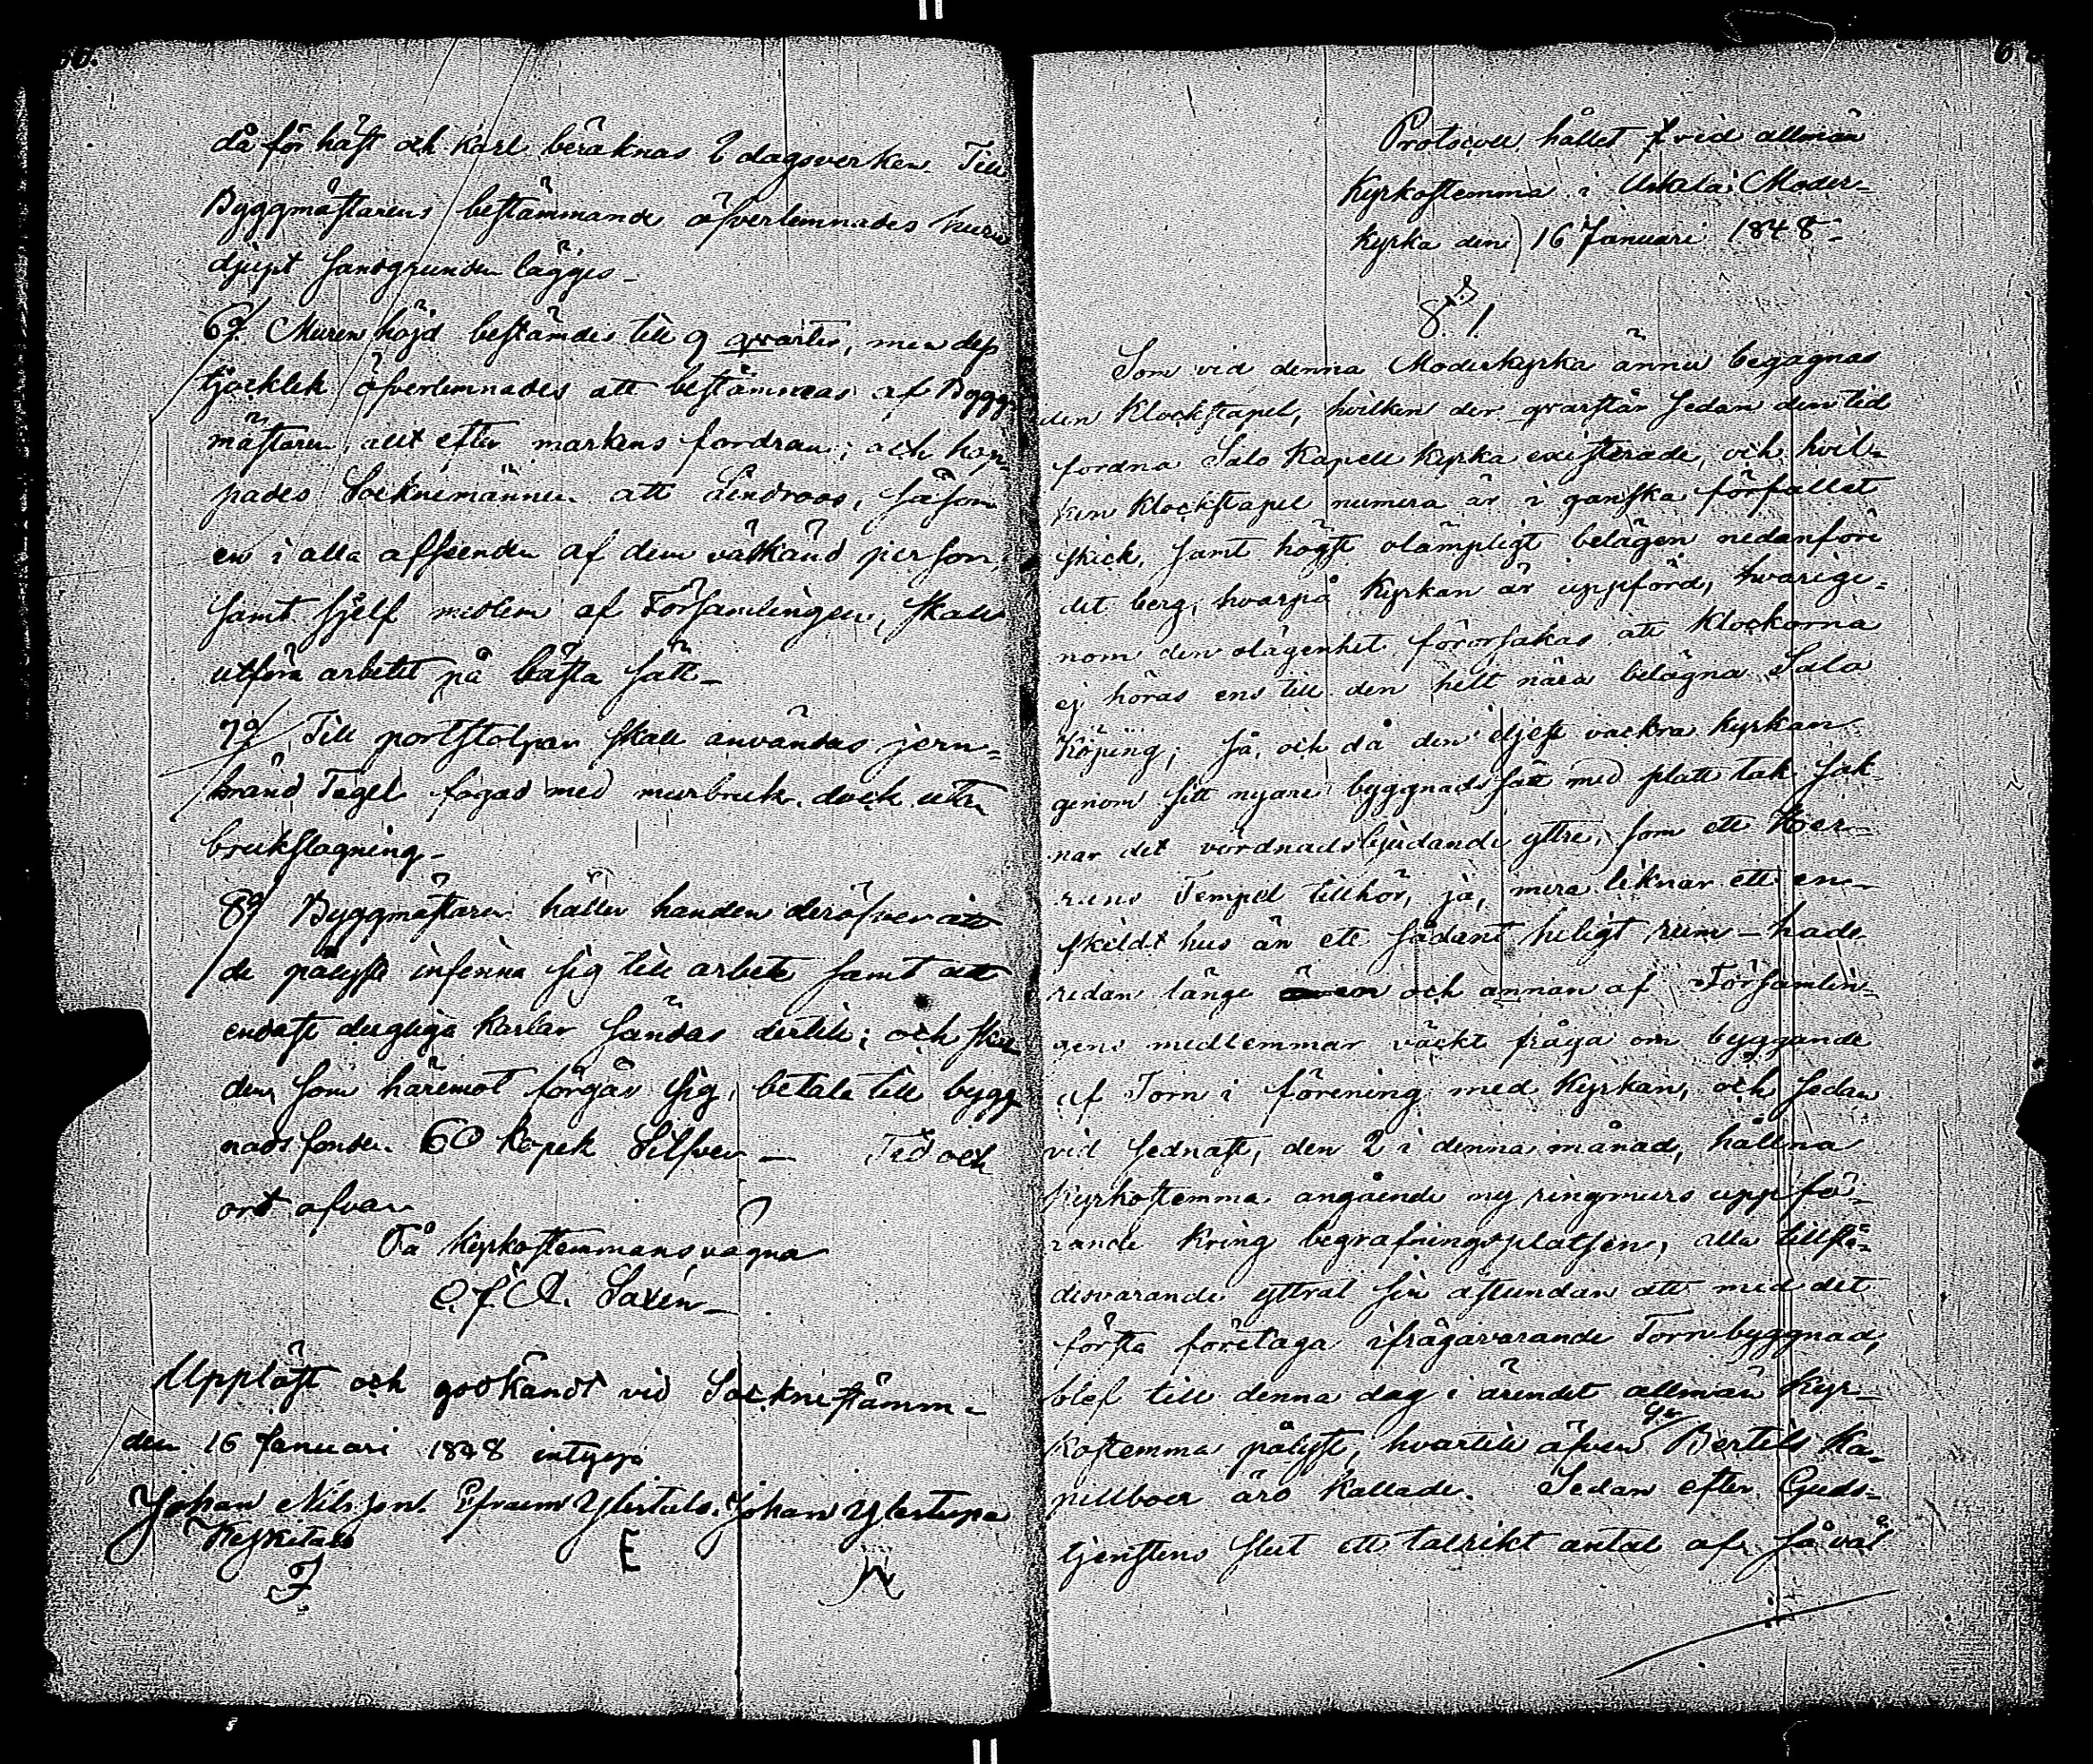 då för häst och karl beräknas 2 dagsverken. Till
Byggmästarens bestämmande öfverlemnades huru
djupt sandgrunden lägges _
6o/ Muren höjd bestämdes till 9 qvarter, men dess
tjocklek öfverlemnades att bestämmas af Bygg-
mästaren, allt efter markens fordran; och hop-
pades Socknemännen att Lindroos, såsom
en i alla afseenden af dem välkänd person,
samt sjelf medlem af Församlingen, skall
utföra arbetet på bästa sätt _
7o/ Till portstolpar skall användas jern-
bränd Tegel fogad med murbruk, dock utan
brukslagning _
8o/ Byggmästaren håller handen deröfver att
de pålyste infinna sig till arbete samt att
endast dugliga karlar sändas dertill; och skall
den som häremot förgår sig, betala till bygg-
nadsfonden 60 kopek Silfver _ Tid och
ort ofvan
På Kyrkostemmans vägna
C. J. A. Saxén _
Uppläst och godkändt vid Socknestämma
den 16 Januari 1848 intyga
Johan Nilsson Efraim Ylistalo. Johan Ylistupa
Keskitalo
F E
Protocoll hållet vid allmän
Kyrkostemma i Uskela Moder-
kyrka den 16 Januari 1848 _
§ 1
Som vid denna Moderkyrka ännu begagnas
den Klockstapel, hvilken der qvarstår sedan den tid
fordna Salo Kapell kyrka existerade, och hvil-
ken Klockstapel numera är i ganska förfallet
skick, samt högst olämpligt belägen nedanföre
det berg, hvarpå Kyrkan är uppförd, hvarige-
nom den olägenhet förorsakas att Klockorna
ej höras ens till den helt nära belägna Salo
Köping; så, och då den eljest vackra kyrkan
genom sitt nyare byggnadssätt med platt tak sak-
nar det vördnadsbjudande yttre, som ett Her-
rans Tempel tillhör, ja, mera liknar ett en-
skildt hus än ett sådant heligt rum – hade
redan länge och annan af Församlin-
gens medlemmar väckt fråga om byggande
af Torn i förening med Kyrkan, och sedan
vid sednast, den 2 i denna månad, hållna
Kyrkostemma angående ny ringmurs uppfö-
rande kring begrafningsplatsen, alla tillstä-
desvarande yttrat sin åstundan att med det
första företaga ifrågavarande Tornbyggnad,
blef till denna dag i ärendet allmän Kyr-
kostemma pålyst, hvartill äfven Bertils Ka-
pellboer äro kallade. Sedan efter Guds-
tjenstens slut ett talrikt antal af såväl